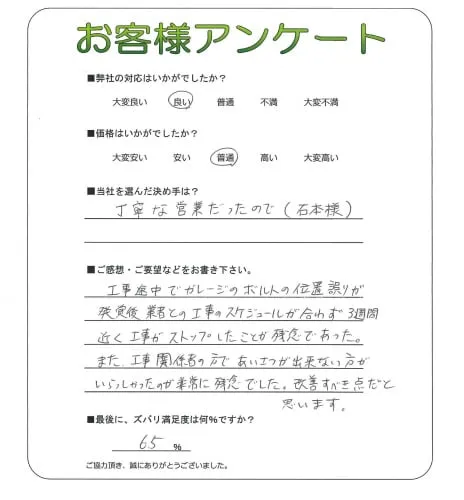 お客様アンケート
■弊社の対応はいかがでしたか？
大変良い 良い 普通 不満 大変不満
■価格はいかがでしたか？
大変安い 安い 普通 高い 大変高い
■当社を選んだ決め手は？
丁寧な営業だったので（石本様）
■ご感想・ご要望などをお書き下さい。
工事途中でガレージのボルトの位置誤りが
発覚後業者との工事のスケジュールが合わず3週間
近く工事がストップしたことが残念であった。
また、工事関係者の方であいさつが出来ない方が
いらっしゃったのが非常に残念でした。改善すべき点だと
思います。
■最後に、ズバリ満足度は何％ですか？
65 ％
ご協力頂き、誠にありがとうございました。